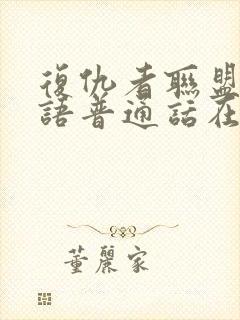 復仇者聯盟
語普通話在
董麗家